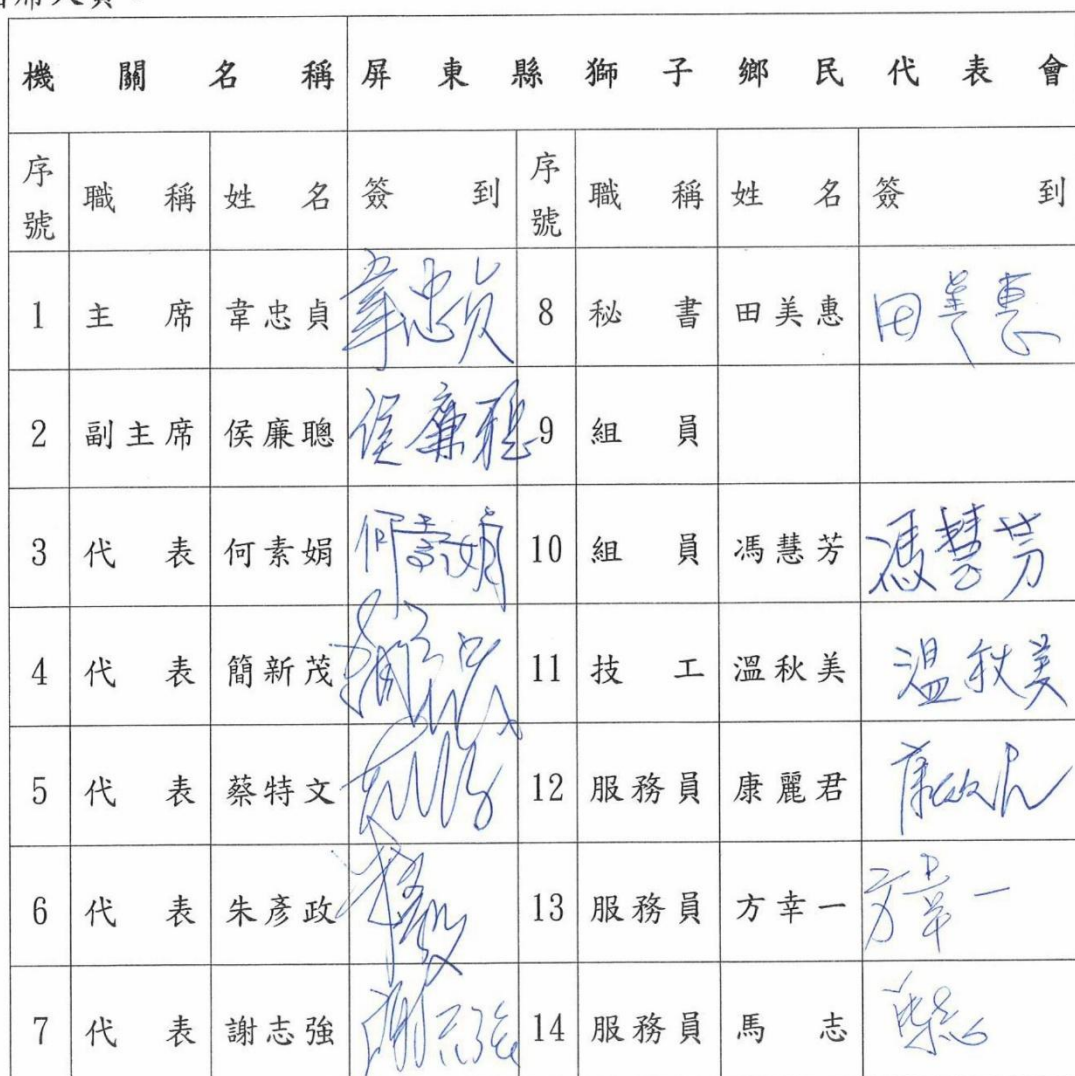 機關名稱 屏東縣獅子鄉民代表會
序號 職稱 姓名 簽到 序號 職稱 姓名 簽到
1 主席 韋忠貞 韋忠貞 8 秘書 田美惠 田美惠
2 副主席 侯廉聰 侯廉聰 9 組員
3 代表 何素娟 何素娟 10 組員 馮慧芳 馮慧芳
4 代表 簡新茂 11 技工 溫秋美 溫秋美
5 代表 蔡特文 12 服務員 康麗君
6 代表 朱彥政 13 服務員 方幸一 方幸一
7 代表 謝志強 謝志強 14 服務員 馬志